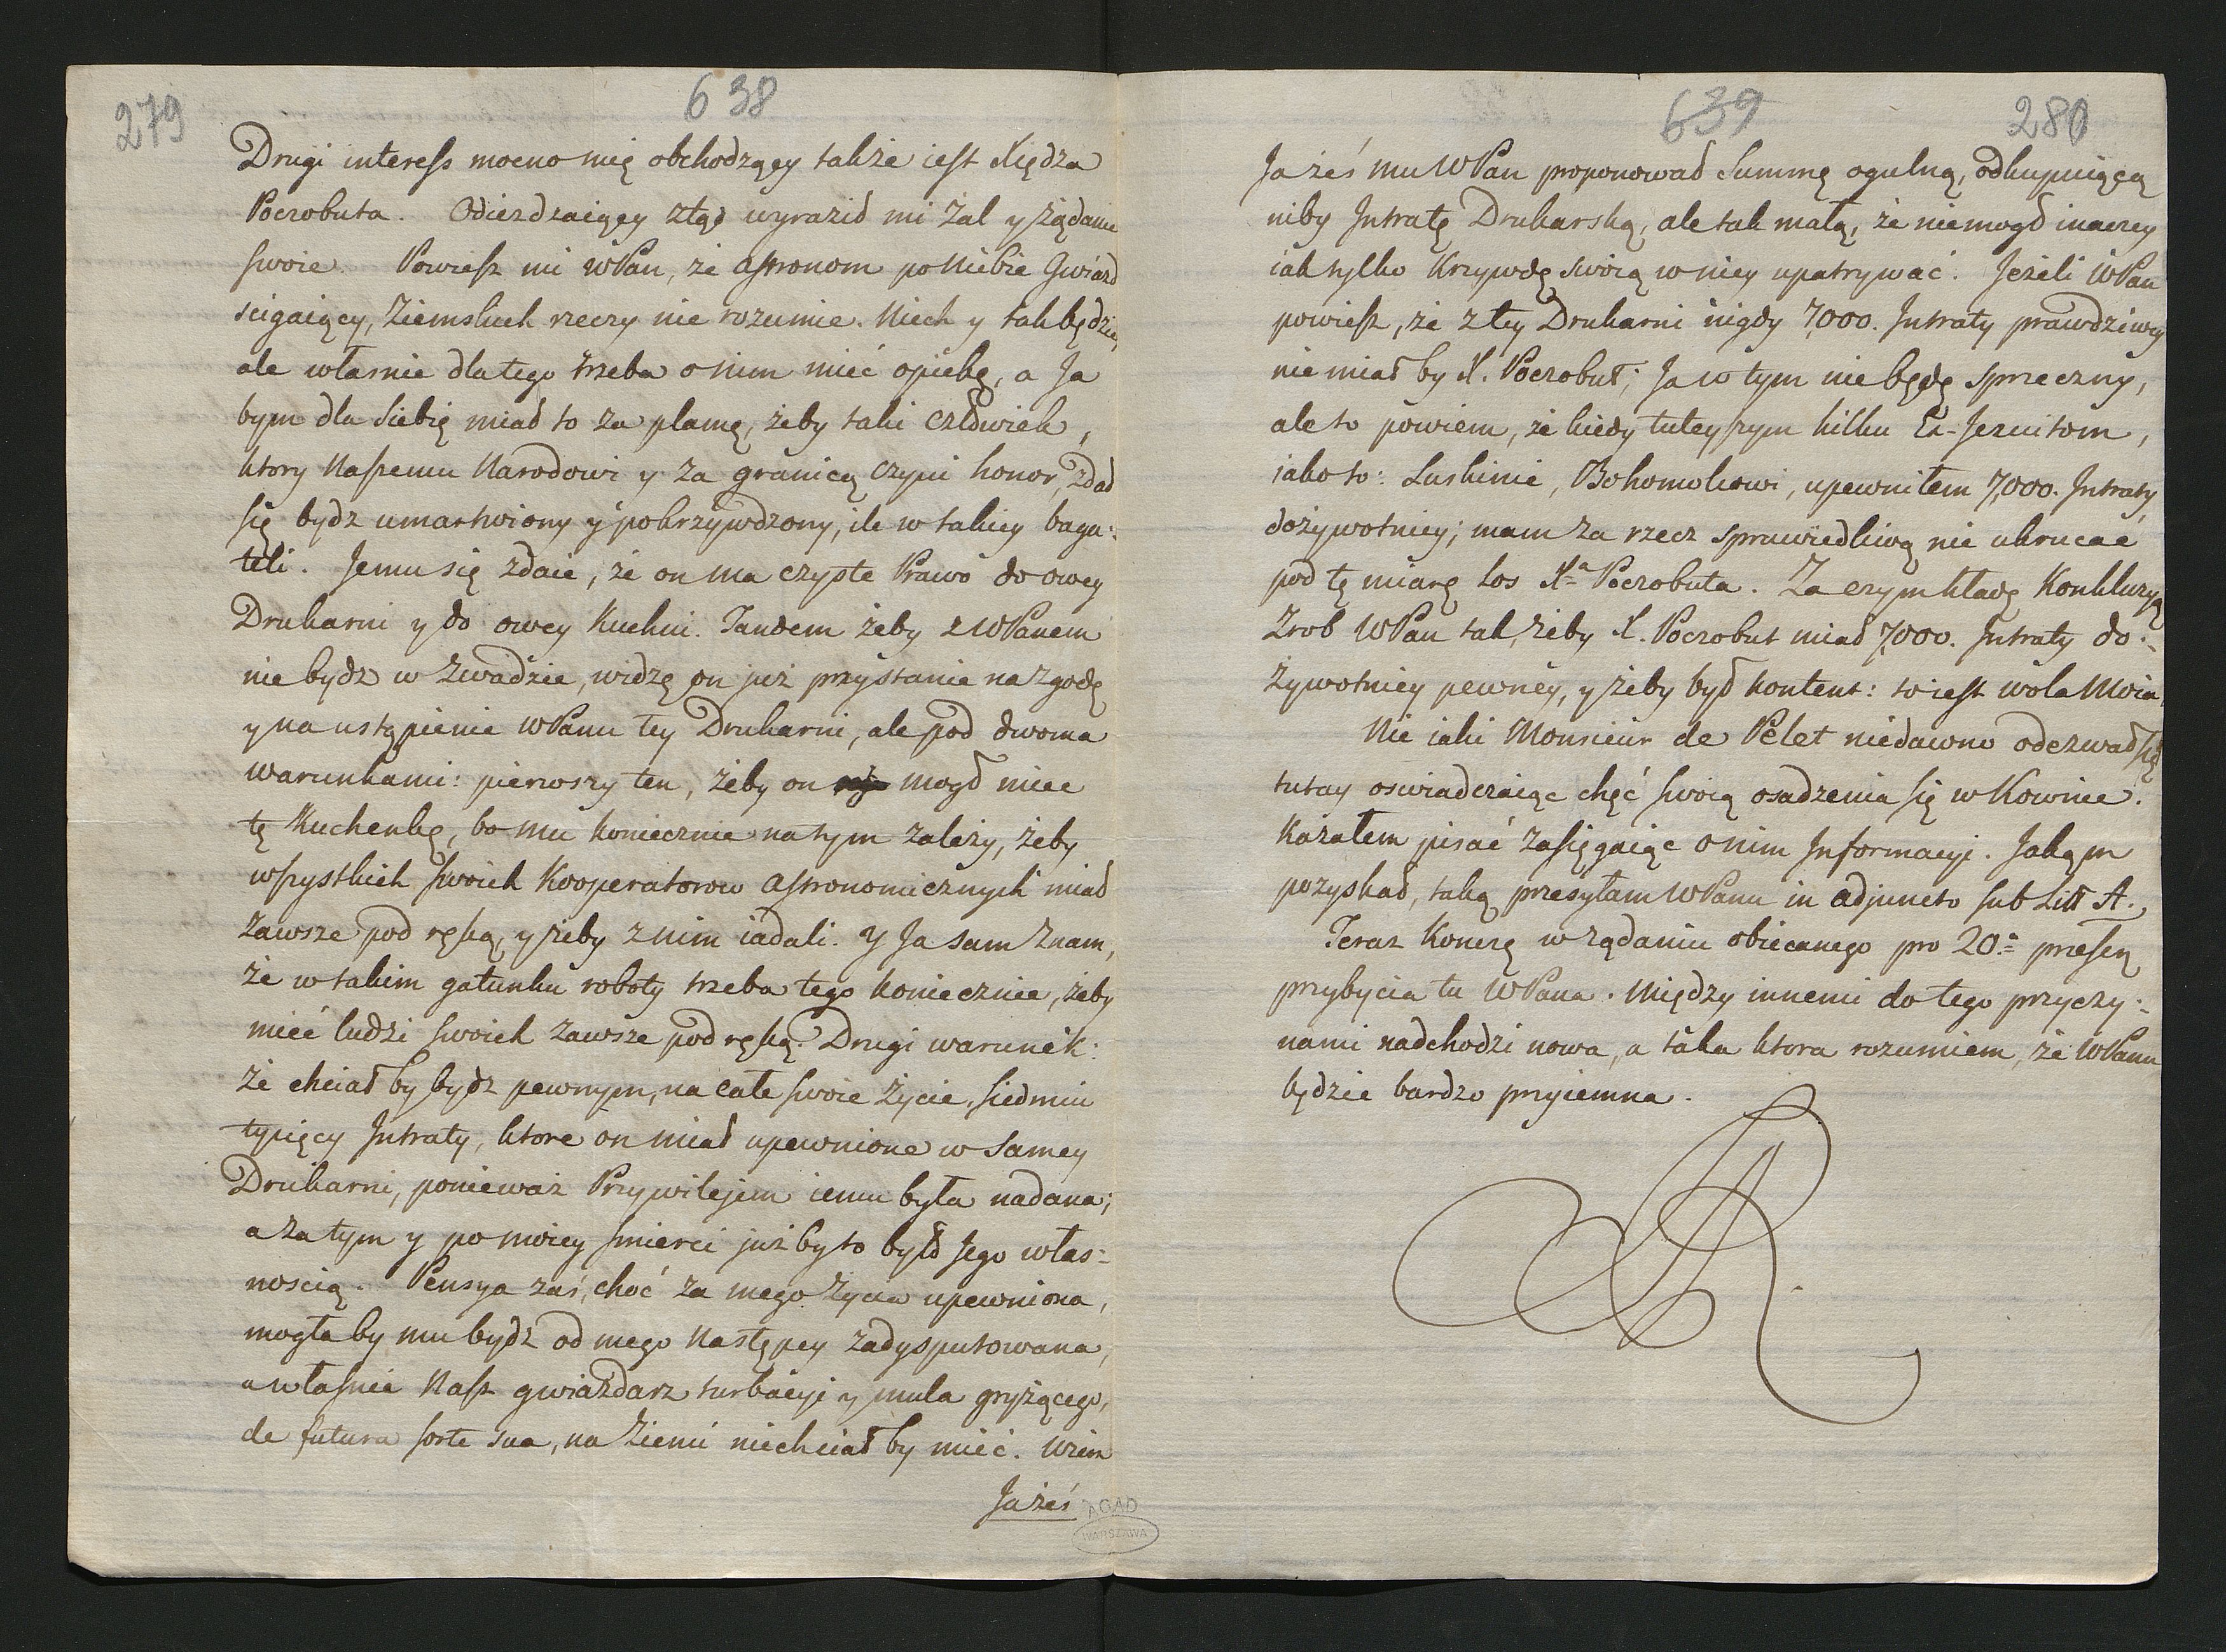 279
638
Drugi interess mocno mię obchodzący także iest Xiędza
Poczobuta. Odiezdzaiący ztąd wyraził mi żal y żądanie
swoie. Powiesz mi WPan, że Astronom po Niebie Gwiazd
scigaiący, Ziemskich rzeczy nie rozumie. Niech y tak będzie,
ale własnie dlatego trzeba o nim mieć opiekę, a Ja
bym dla siebię miał to za plamę, żeby taki człowiek,
ktory Naszemu Narodowi y za granicą czyni honor, zdał
się bydz umartwiony y pokrzywdzony, ile w takiey baga:
teli. Jemu się zdaie, że on ma czyste Prawo do owey
Drukarni y do owey Kuchni. Tandem żeby z WPanem
nie bydz w Zwadzie, widzę on już przystanie na zgodę
y na ustąpienie WPanu tey Drukarni, ale pod dwoma
warunkami: pierwszy ten, żeby on mogł miec
tę Kuchenkę, bo mu koniecznie na tym zależy, żeby
wszystkich swoich Kooperatorow Astronomicznych miał
zawsze pod ręką, y żeby z nim iadali. Y Ja sam znam,
że w takim gatunku roboty trzeba tego koniecznie, żeby
mieć ludzi swoich zawsze pod ręką. Drugi warunek:
że chciał by bydz pewnym, na całe swoie Życie, siedmiu
tysięcy Intraty, ktore on miał upewnione w samey
Drukarni, ponieważ Przywilejem iemu była nadana;
a za tym y po moiey smierci już by to było Jego włas:
noscią. Pensya zaś, choć za mego życia upewniona,
mogła by mu bydź od mego Następcy zadysputowana,
a własnie Nasz gwiazdarz turbacyi y mula gryżącego,
de futura sorte sua, na Ziemi niechciał by mieć. Wiem
Ja żeś
AGAD
WARSZAWA
639
280
Ja żeś mu WPan proponował Summę ogulną, odkupuiącą
niby Intratę Drukarską, ale tak małą, że niemogł inaczey
iak tylko Krzywdę swoią w niey upatrywać. Jeżeli WPan
powiesz, że z tey Drukarni nigdy 7,000. Intraty prawdziwey
nie miał by X. Poczobut; Ja w tym nie będę sprzeczny,
ale to powiem, że kiedy tuteyszym kilku Ex-Jezuitom,
jako to: Luskinie, Bohomolcowi, upewniłem 7,000. Intraty
dożywotniey; mam za rzecz sprawiedliwą nie ukrucać
pod tę miarę los Xa Poczobuta. Za czym kładę Konkluzyą
Zrob WPan tak, żeby X. Poczobut miał 7,000. Intraty do:
żywotniey pewney, y żeby był kontent: to iest wola Moia.
Nie iaki Monsieur de Pelet niedawno odezwał się
tutay oswiadczaiąc chęć swoią osadzenia się w Kownie.
Kazałem pisać zasięgaiąc o nim Informacyi. Jakąm
pozyskał, taką przesyłam WPanu in adjuncto sub Litt A.
Teraz Kończę w żądaniu obiecanego pro 20.a præsen
przybycia tu WPana. Między innemi do tego przyczy:
nami nadchodzi nowa, a taka ktora rozumiem, że WPanu
będzie bardzo przyiemna.